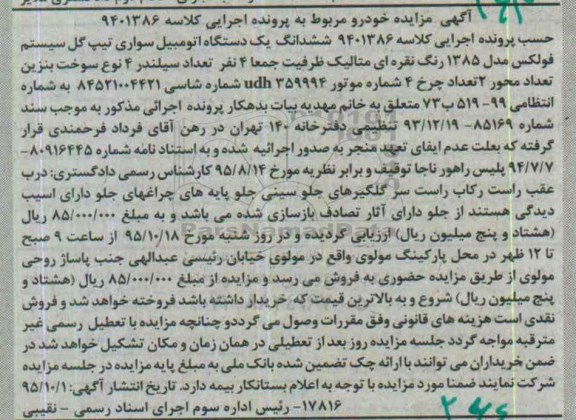 آگهی مزایده خودرو مربوط به پرونده اجرایی کلاسه ۹۴۰۱۳۸۶
حسب پرونده اجرایی کلاسه ۹۴۰۱۳۸۶ ششدانگ یک دستگاه اتومبیل سواری تیپ گل سیستم
فولکس مدل ۱۳۸۵ رنگ نقره ای متالیک ظرفیت جمعا ۴ نفر تعداد سیلندر ۴ نوع سوخت بنزین
تعداد محور ۲تعداد چرخ ۴ شماره موتور udh ۳۵۹۹۹۴ شماره شاسی ۸۴۵۲۱۰۰۴۴۲۱ به شماره
انتظامی ۹۹- ۵۱۹ ب۷۳ متعلق به خانم مهدیه بیات بدهکار پرونده اجرائی مذکور به موجب سند
شماره ۸۵۱۶۹- ۹۳/۱۲/۱۹ تنظیمی دفترخانه ۱۴۰ تهران در رهن آقای فرداد فرحمندی قرار
گرفته که بعلت عدم ایفای تعهد منجر به صدور اجرائیه شده و به استناد نامه شماره ۸۰۹۱۶۴۴۵-
۹۴/۷/۷ پلیس راهور ناجا توقیف و برابر نظریه مورخ ۹۵/۸/۱۴ کارشناس رسمی دادگستری: درب
عقب راست رکاب راست سر گلگیرهای جلو سینی جلو پایه های چراغهای جلو دارای اسیب
دیدگی هستند از جلو دارای آثار تصادف بازسازی شده می باشد و به مبلغ ۸۵/۰۰۰/۰۰۰ ریال
(هشتاد و پنج میلیون ریال) ارزیابی گردیده و در روز شنبه مورخ ۹۵/۱۰/۱۸ از ساعت ۹ صبح
تا ۱۲ ظهر در محل پارکینگ مولوی واقع در مولوی خیابان رئیسی عبدالهی جنب پاساژ روحی
مولوی از طریق مزایده حضوری به فروش می رسد و مزایده از مبلغ ۸۵/۰۰۰/۰۰۰ ریال (هشتاد و
پنج میلیون ریال) شروع و به بالاترین قیمت که خریدار داشته باشد فروخته خواهد شد و فروش
نقدی است هزینه های قانونی وفق مقررات وصول می گرددو چنانچه مزایده با تعطیل رسمی غیر
مترقبه مواجه گردد جلسه مزایده روز بعد از تعطیلی در همان زمان و مکان تشکیل خواهد شد در
ضمن خریداران می توانند با ارائه چک تضمین شده بانک ملی به مبلغ پایه مزایده در جلسه مزایده
شرکت نمایند ضمنا مورد مزایده با توجه به اعلام بستانکار بیمه دارد. تاریخ انتشار آگهی: ۹۵/۱۰/۱
۱۷۸۱۶- رئیس اداره سوم اجرای اسناد رسمی - نقیبی